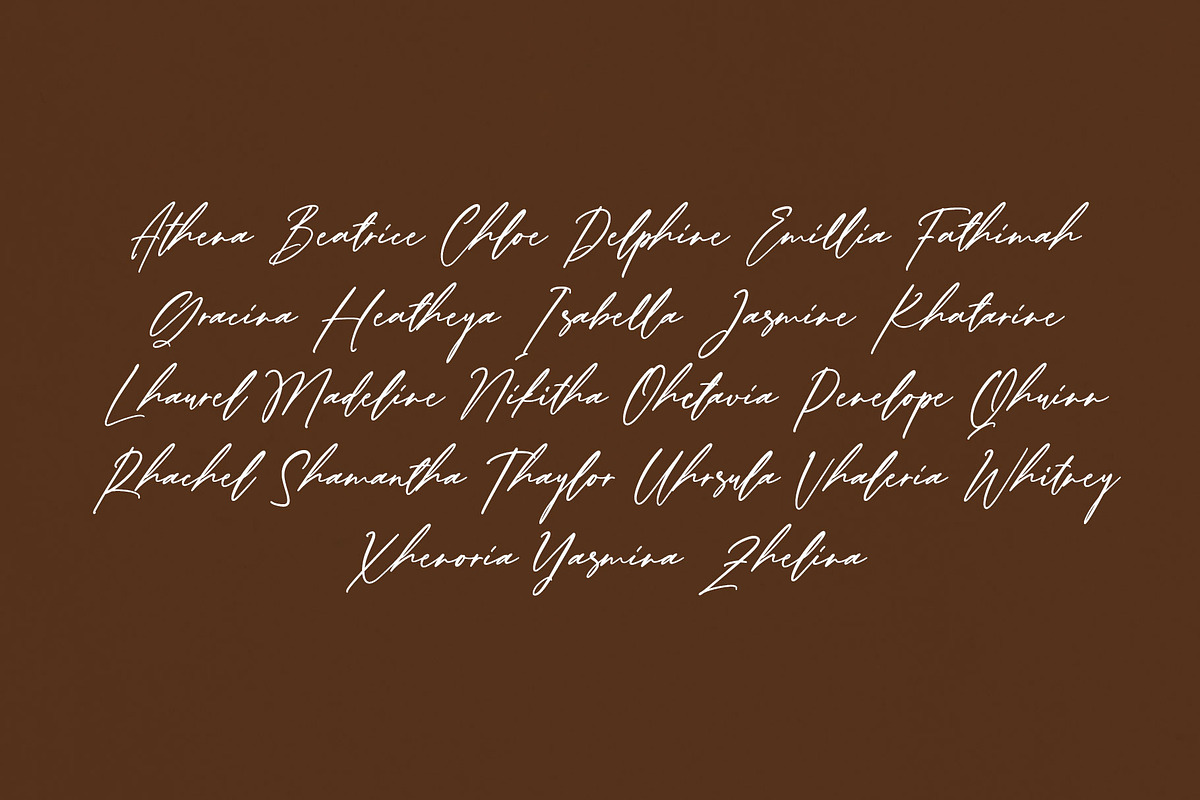 Athena Beatrice Chloe Delphine Emillia Fathimah
Gracina Heatheya Isabella Jasmine Khatarine
Lhaurel Madeline Nikitha Ohctavia Penelope Qhuinn
Rhachel Shamantha Thaylor Uhrsula Vhaleria Whitney
Xhenoria Yasmina Zhelina